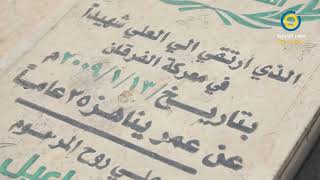 الذي ارتقى الى العلى شهيداً
في معركة الفرقان
بتاريخ ١٣/١/٢٠٠٩م
عن عمر يناهز ٢٥ عاماً
روح المرحوم